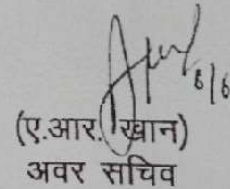 6/6
(ए.आर. खान)
अवर सचिव